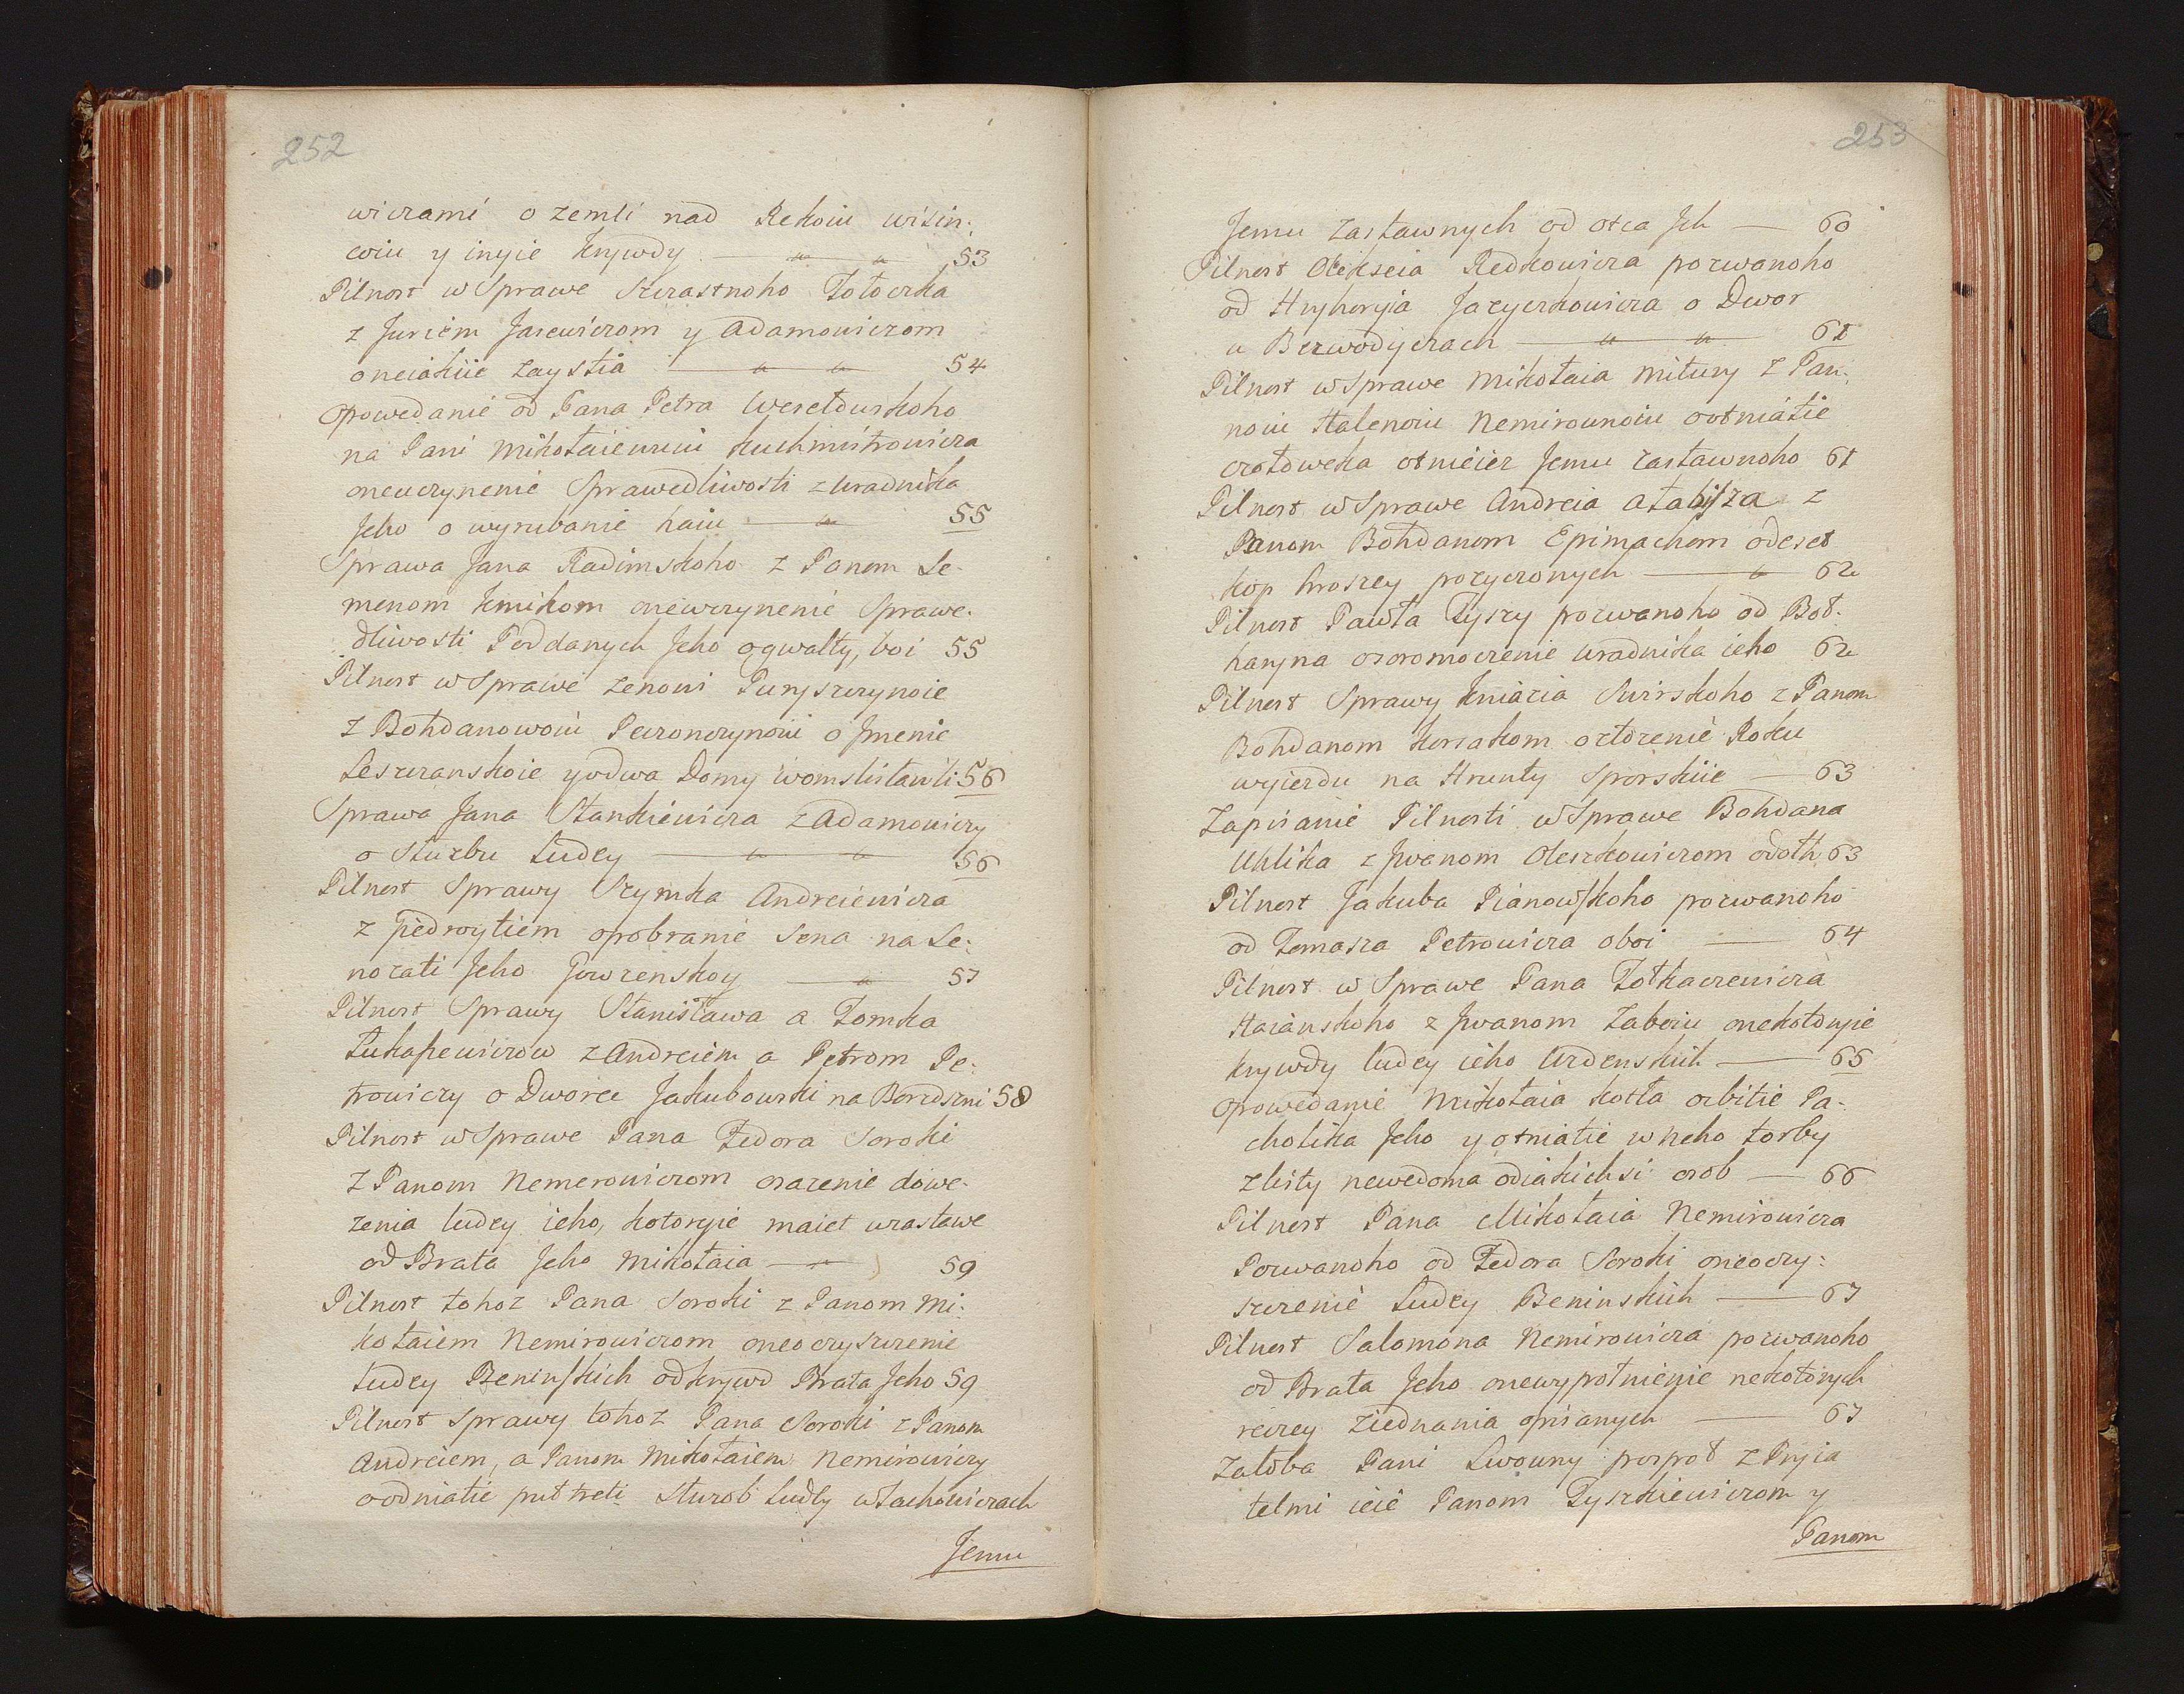 252
wiczami o zemli nad Rekoiu wisin:
coiu y inyie krywdy 53
Pilnost w Sprawe Szczastnoho Tołoczka
z Juriem Jacewiczom y Adamowiczom
oneiakiie zaystia 54
Opowedanie od Pana Petra
na Pani Mikołaiewuiu Kuchmistrowicza
oneuczynenie Sprawedliwosti z Uradnika
Jeho o wyrubanie haiu 55
Sprawa Jana Radimskoho z Panem Se-
menom Kmikom oneuczynenie Sprawe-
dliwosti Poddanych Jeho o gwałty, boi 55
Pilnost w Sprawe Zenowi Puryszczynoie
z Bohdanowoiu o Jmenie
Leszczanskoie y o dwa Domy 56
Sprawa Jana Stankiewicza z Adamowiczy
o Służbu Ludey 56
Pilnost Sprawy Szymka Andreiewicza
z Giedroytiem o pobranie Sena na Se:
nozati Jeho 57
Pilnost Sprawy Stanisława a Tomka
Łukaszewiczow z Andreiem a Petrom Pe:
trowiczy o Dworec Jakubowski na 58
Pilnost w Sprawe Pana Fedora Soroki
z Panom Nemerowiczom
zenia ludey ieho, kotoryie maiet uzastawe
od Brata Jeho Mikołaia 59
Pilnost tohoz Pana Soroki z Panom Mi:
kołaiem Nemirowiczom oneoczyszczenie
Ludey Beninskich od krywd Brata Jeho 59
Pilnost Sprawy tohoz Pana Soroki z Panom
Andreiem, a Panom Mikołaiem Nemirowiczy
o odniatie put treti Służob Ludey w Łachowiczach
Jemu
253
Jemu zastawnych od otca Jch 60
Pilnost Olekseia Redkowicza pozwanoho
od Hryhoryia Jazyczkowicza o Dwor
u Bezwodyczach 61
Pilnost w Sprawe Mikołaia Mitury z Pan:
noiu Halenoiu Nemirownoiu o otniatie
czołoweka otnieiez Jemu zastawnoho 61
Pilnost w Sprawe Andreia z
Panom Bohdanom Epimachom o deset
kop hroszey pozyczonych 62
Pilnost Pawła Tyszy pozwanoho od Boł:
haryna o soromoczenie uradnika ieho 62
Pilnost Sprawy Kniazia Swirskoho z Panom
Bohdanom Korsakom o złozenie Roku
wyiezdu na Hrunty Sporskiie 63
Zapisanie Pilnosti w Sprawe Bohdana
Uhlika z Jwanom Oleszkowiczom o dołh 63
Pilnost Jakuba Pianowskoho pozwanoho
od Tomasza Petrowicza o boi 64
Pilnost w Sprawe Pana Tołkaczewicza
z Jwanom Zaboiu onekotoryie
krywdy ludey ieho Urdenskich 65
Opowedanie Mikołaia Kotła o zbitie Pa-
cholika Jeho y otniatie w neho torby
z listy newedoma od iakichsi osob 66
Pilnost Pana Mikołaia Nemirowicza
Pozwanoho od Fedora Soroki oneoczy:
szczenie Ludey Beninskich 67
Pilnost Salomona Nemirowicza pozwanoho
od Brata Jeho onewypołnienie nekotorych
reczey ziednania opisanych 67
Załoba Pani Lwowny pospoł z Pryia
telmi ieie Panom Tyszkiewiczom y
Panom